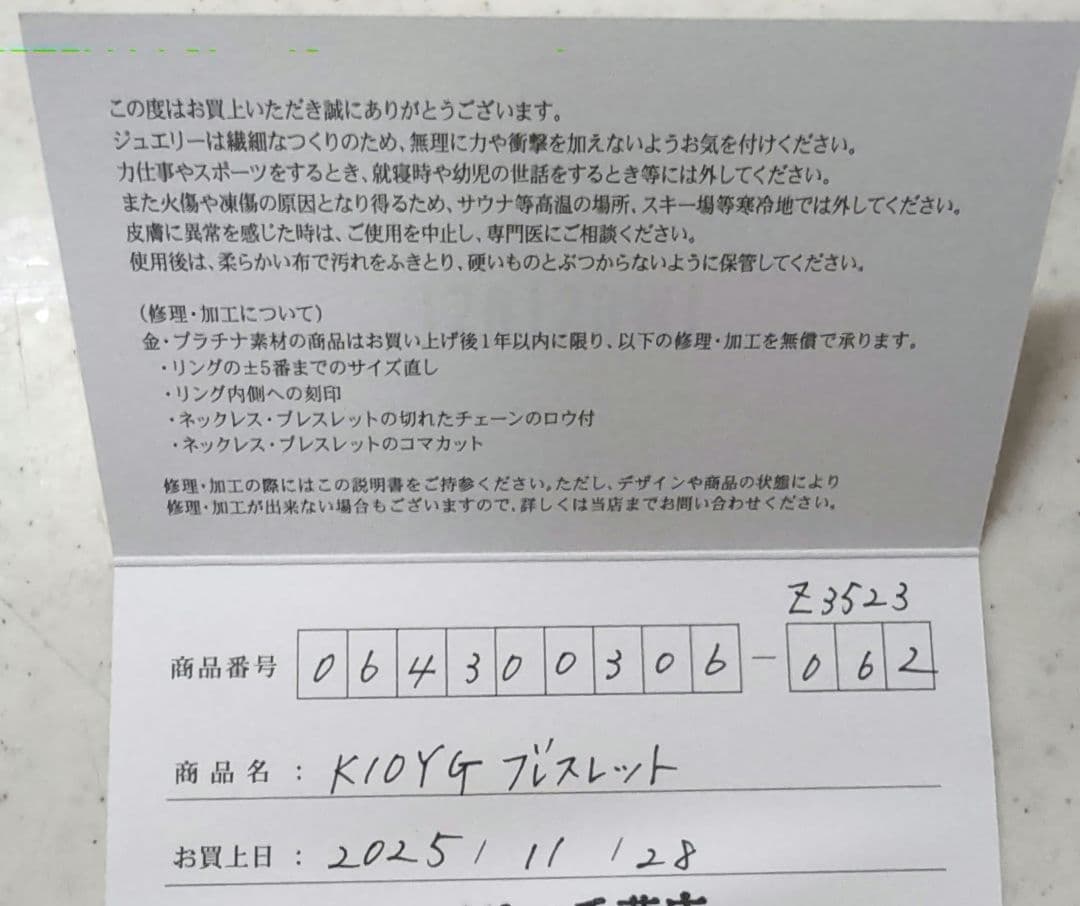 この度はお買上いただき誠にありがとうございます。
ジュエリーは繊細なつくりのため、無理に力や衝撃を加えないようお気を付けください。
力仕事やスポーツをするとき、就寝時や幼児の世話をするとき等には外してください。
また火傷や凍傷の原因となり得るため、サウナ等高温の場所、スキー場等寒冷地では外してください。
皮膚に異常を感じた時は、ご使用を中止し、専門医にご相談ください。
使用後は、柔らかい布で汚れをふきとり、硬いものとぶつからないように保管してください。
(修理・加工について)
金・プラチナ素材の商品はお買い上げ後1年以内に限り、以下の修理・加工を無償で承ります。
・リングの±5番までのサイズ直し
・リング内側への刻印
・ネックレス・ブレスレットの切れたチェーンのロウ付
・ネックレス・ブレスレットのコマカット
修理・加工の際にはこの説明書をご持参ください。ただし、デザインや商品の状態により
修理・加工が出来ない場合もございますので、詳しくは当店までお問い合わせください。
Z3523
商品番号 064300306-062
商品名：K10YG ブレスレット
お買上日：2025/11/28